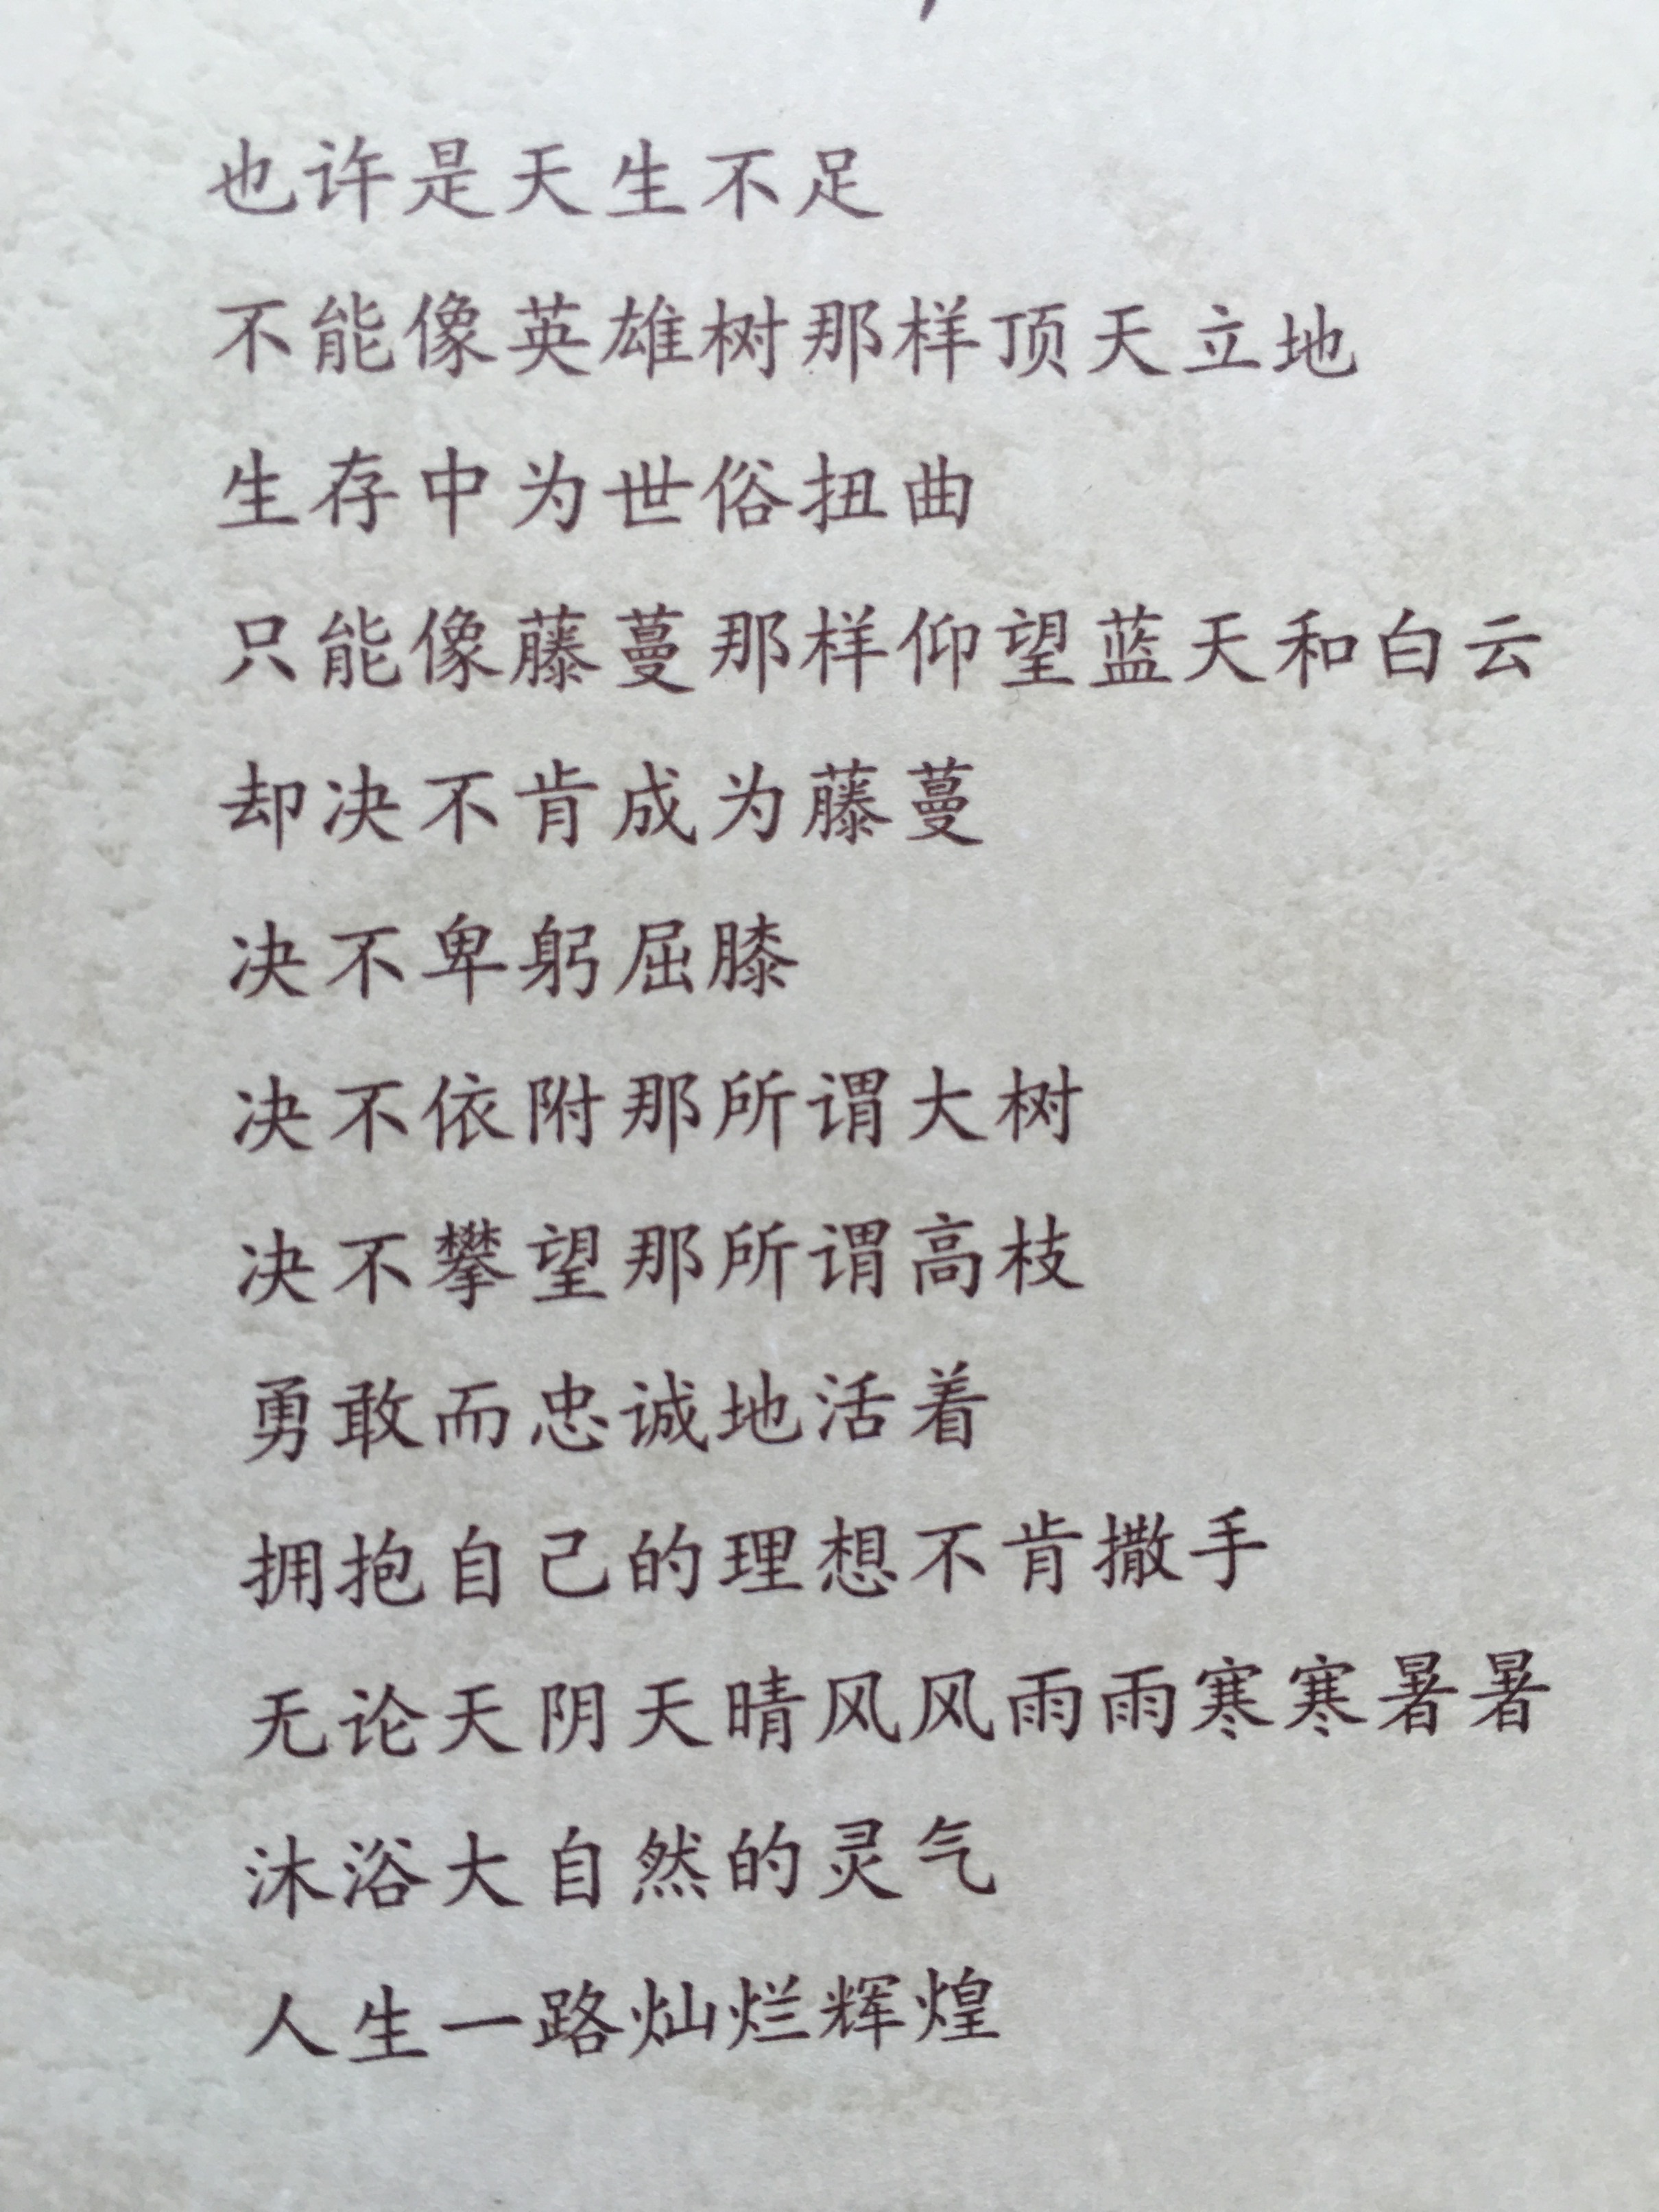 也许是天生不足
不能像英雄树那样顶天立地
生存中为世俗扭曲
只能像藤蔓那样仰望蓝天和白云
却决不肯成为藤蔓
决不卑躬屈膝
决不依附那所谓大树
决不攀望那所谓高枝
勇敢而忠诚地活着
拥抱自己的理想不肯撒手
无论天阴天晴风风雨雨寒寒暑暑
沐浴大自然的灵气
人生一路灿烂辉煌